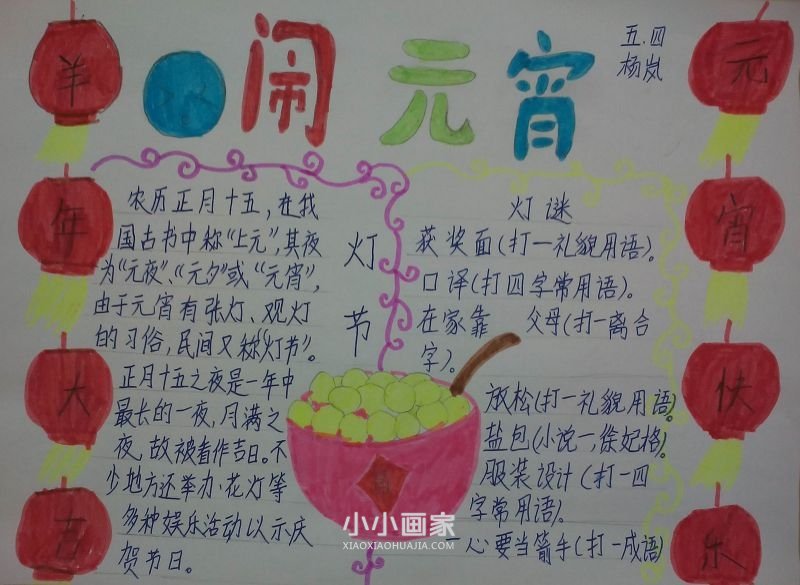 闹元宵
五.四
杨岚
羊
年
大
吉
元
宵
快
乐
农历正月十五,在我
国古书中称“上元”,其夜
为“元夜”、“元夕”或“元宵”,
由于元宵有张灯、观灯
的习俗,民间又称“灯节”。
正月十五之夜是一年中
最长的一夜,月满之
夜,故被看作吉日。不
少地方还举办·花灯等
多种娱乐活动以示庆
贺节日。
灯
节
灯谜
获奖面(打一礼貌用语)。
口译(打四字常用语)。
在家靠 父母(打一离合
字)。
放松(打一礼貌用语)。
盐包(小说一,徐妃格)。
服装设计(打一四
字常用语)。
一心要当箭手(打一成语)
小小画家
XIAOXIAOHUAJIA.COM